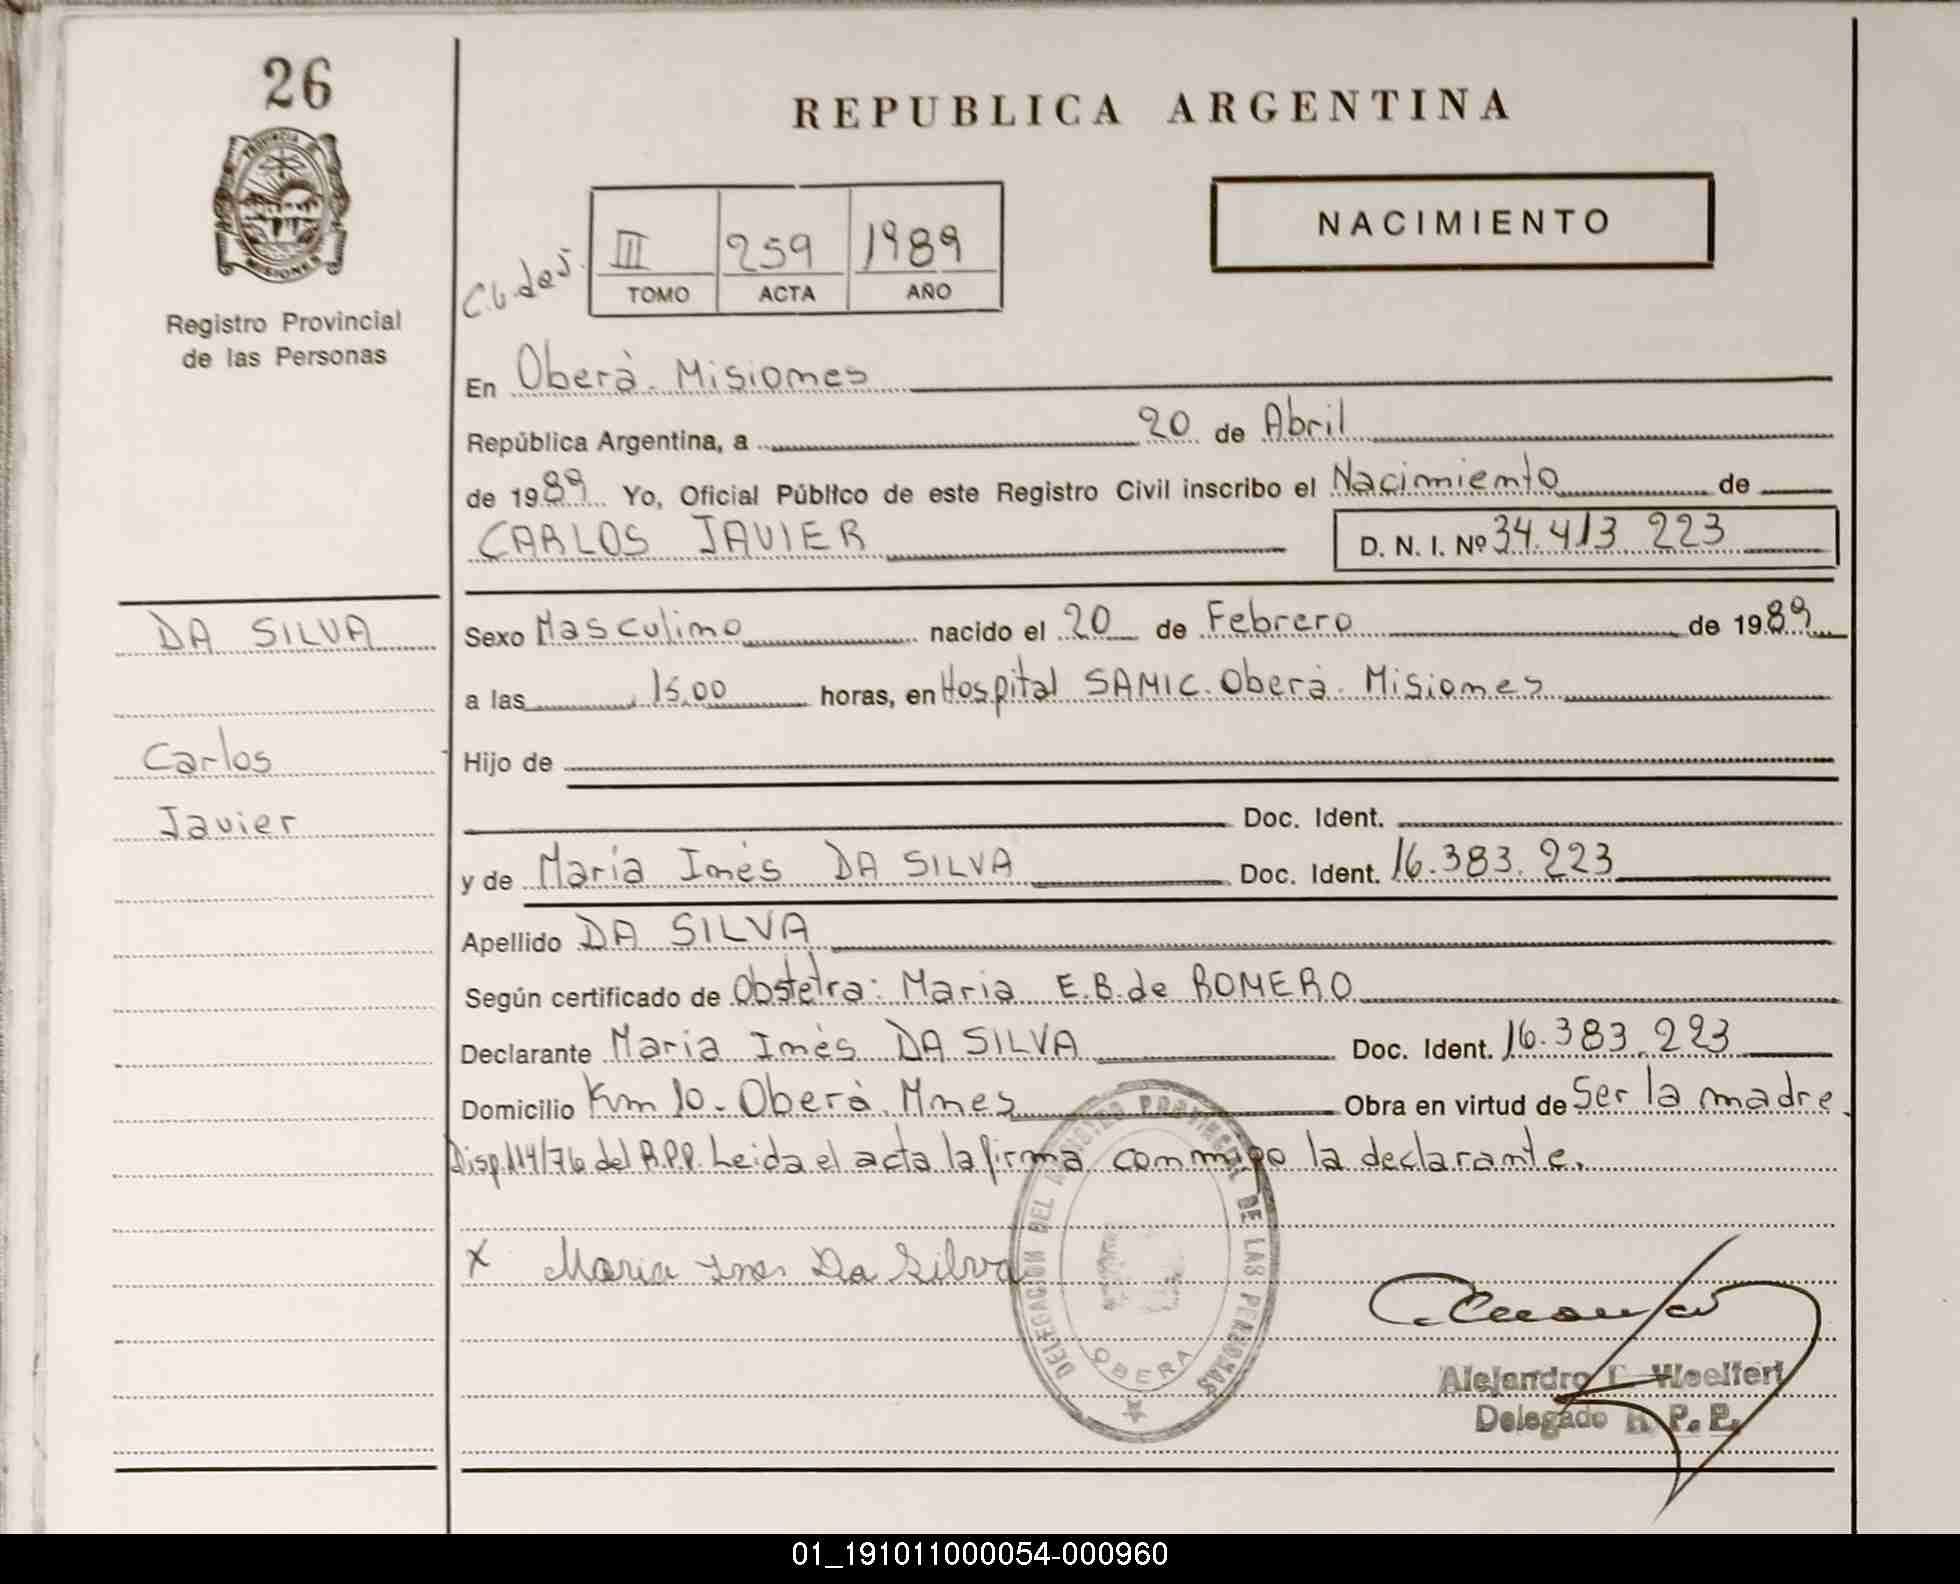 26
PROVINCIA DE
MISIONES
Registro Provincial
de las Personas
REPUBLICA ARGENTINA
NACIMIENTO
III 259 1989
TOMO ACTA AÑO
En Oberà. Misiones
República Argentina, a 20 de Abril
de 1989 Yo, Oficial Público de este Registro Civil inscribo el Nacimiento de
CARLOS JAVIER D. N. I. Nº 34.413 223
DA SILVA
Carlos
Javier
Sexo Masculino nacido el 20 de Febrero de 1989
a las 15,00 horas, en Hospital SAMIC. Oberà. Misiones
Hijo de
Doc. Ident.
y de Maria Inés DA SILVA Doc. Ident. 16.383.223
Apellido DA SILVA
Según certificado de Obstetra: Maria E.B. de ROMERO
Declarante Maria Inès DA SILVA Doc. Ident. 16.383.223
Domicilio Km 10. Oberà. Mnes Obra en virtud de Ser la madre.
Disp.114/76 del R.P.P. Leida el acta la firma conmigo la declarante.
X Maria Ines Da Silva
DELEGACION DEL REGISTRO PROVINCIAL DE LAS PERSONAS
OBERA
Alejandro
Delegado R. P. P.
01_191011000054-000960